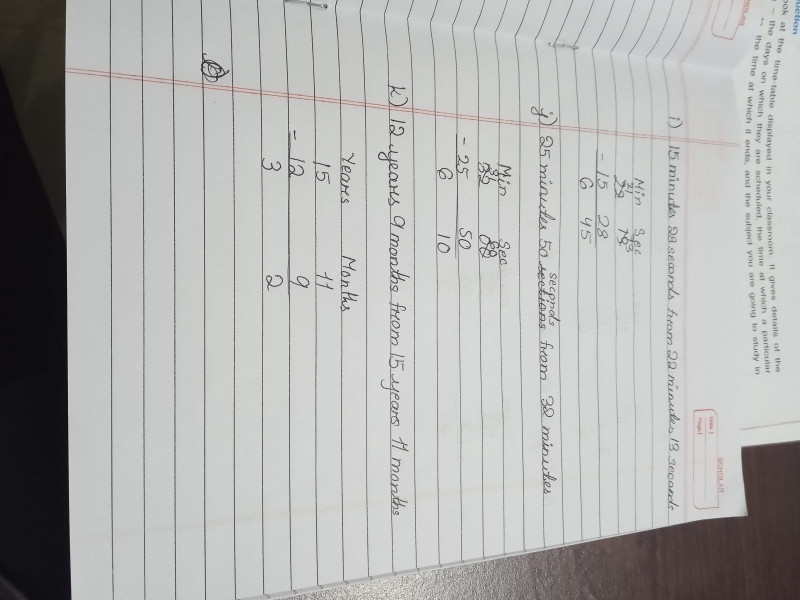 uction
ook at the time-table displayed in your classroom. It gives details of the
– the days on which they are scheduled, the time at which a particular
the time at which it ends, and the subject you are going to study in
SCHOLAR
SCHOLAR
Date:
Page:
i) 15 minutes 28 seconds from 22 minutes 13 seconds
Min Sec
21 73
22 13
- 15 28
6 45
j) 25 minutes 50 sections seconds from 32 minutes
Min Sec
31 60
32 00
- 25 50
6 10
k) 12 years 9 months from 15 years 11 months
Years Months
15 11
- 12 9
3 2